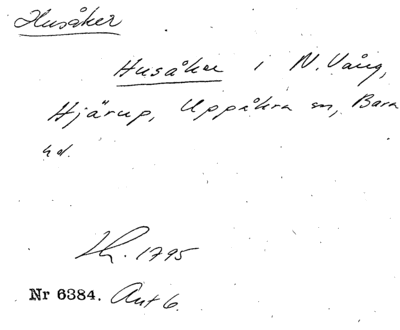 Husåker
Husåker i N. Vång,
Hjärup, Uppåkra sn, Bara
hd.
1795
Nr 6384. Ant 6.